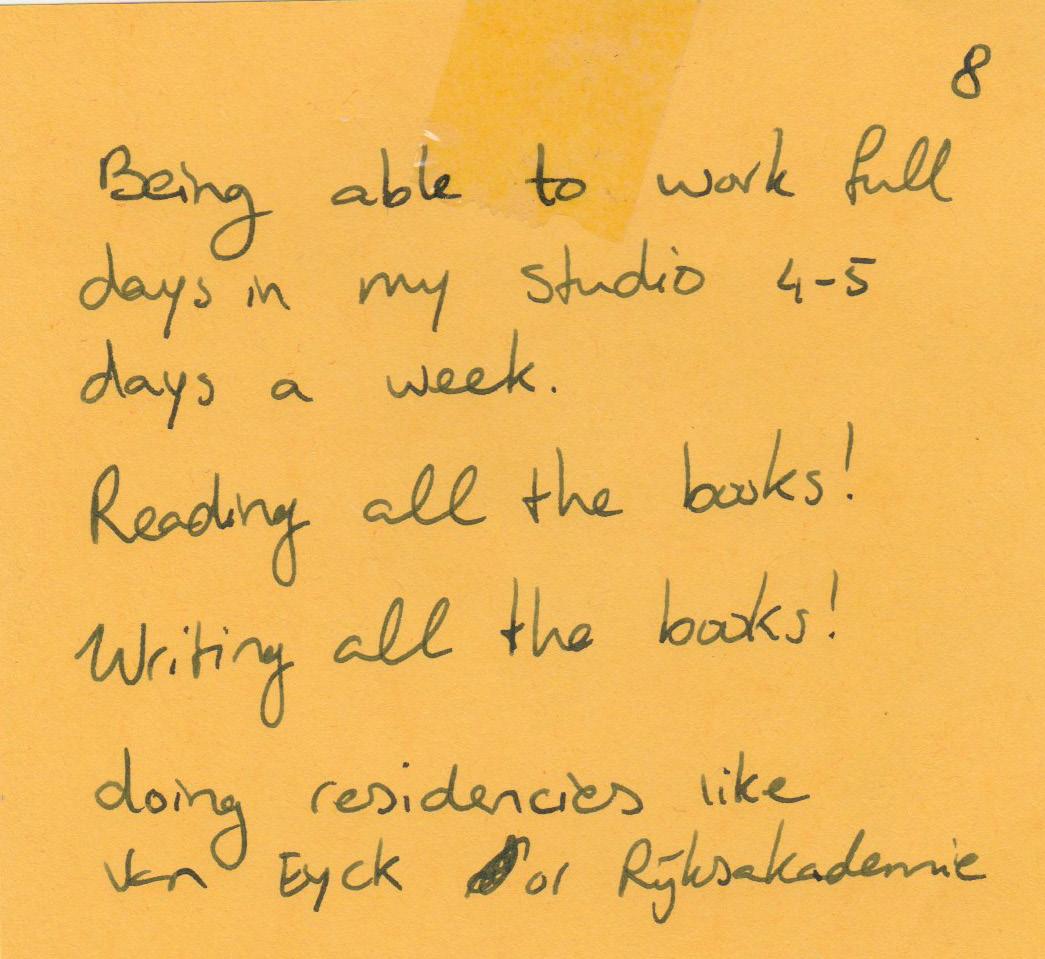 8
Being able to work full
days in my studio 4-5
days a week.
Reading all the books!
Writing all the books!
doing residencies like
Van Eyck or Rijksakademie